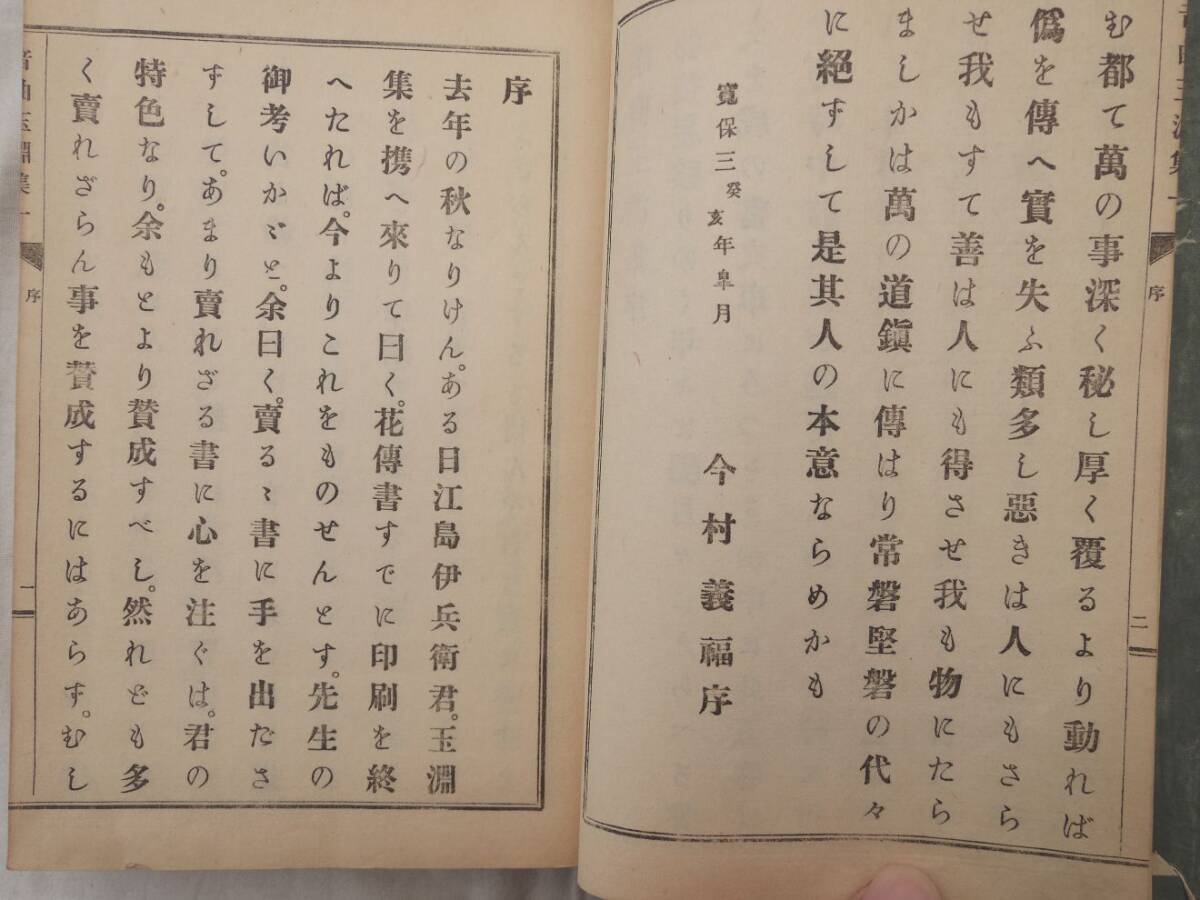 む都て萬の事深く秘し厚く覆るより動れば
僞を傳へ實を失ふ類多し惡きは人にもさら
せ我もすて善は人にも得させ我も物にたら
ましかは萬の道鎭に傳はり常磐堅磐の代々
に絕ずして是其人の本意ならめかも
寬保三癸亥年皐月
今村義福序
序
二
序
去年の秋なりけん。ある日江島伊兵衛君。玉淵
集を携へ來りて曰く。花傳書すでに印刷を終
へたれば。今よりこれをものせんとす。先生の
御考いかゞと。余曰く。賣るゝ書に手を出ださ
ずして。あまり賣れざる書に心を注ぐは。君の
特色なり。余もとより賛成すべし。然れども多
く賣れざらん事を賛成するにはあらず。むし
音曲玉淵集一
序
一